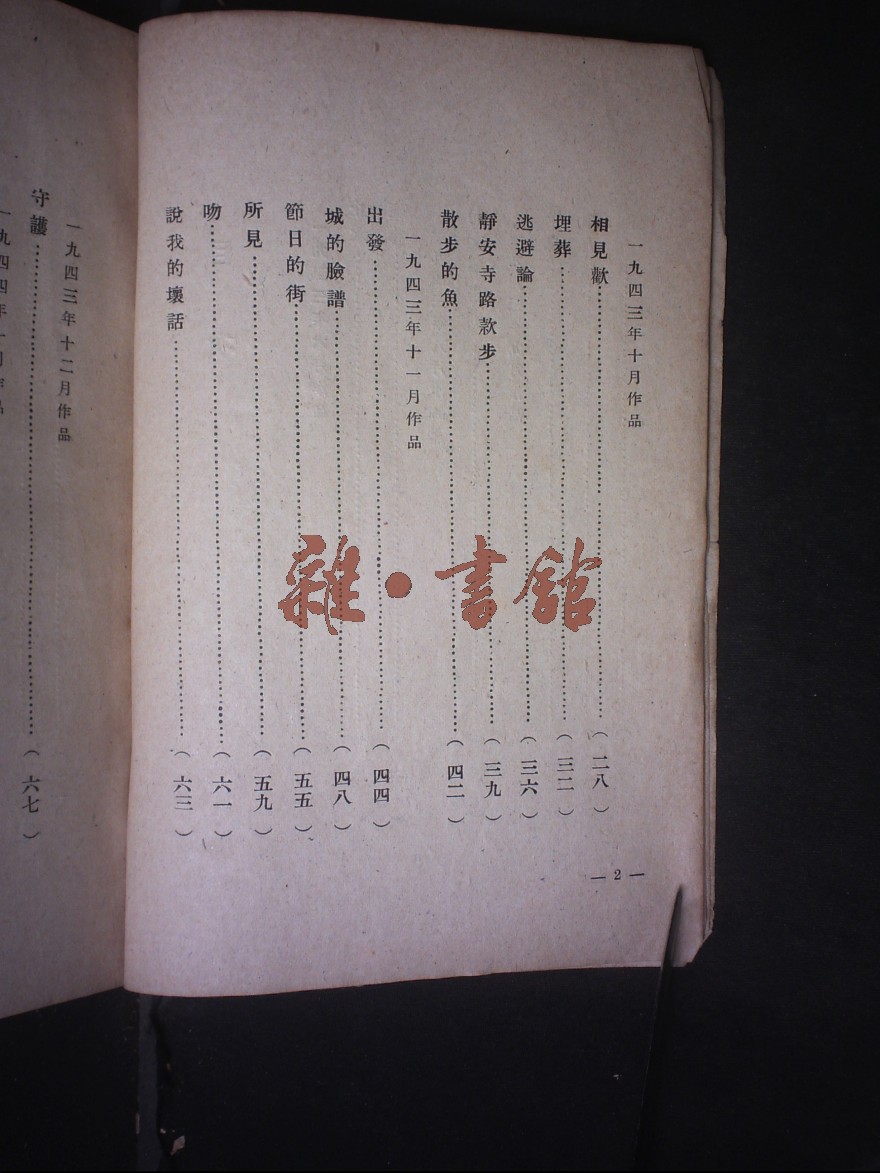 一九四三年十月作品
相見歡……(二八)
埋葬……(三二)
逃避論……(三六)
靜安寺路款步……(三九)
散步的魚……(四二)
一九四三年十一月作品
出發……(四四)
城的臉譜……(四八)
節日的街……(五五)
所見……(五九)
吻……(六一)
說我的壞話……(六三)
— 2 —
一九四三年十二月作品
守護……(六七)
一九四四年一月作品
雜·書館